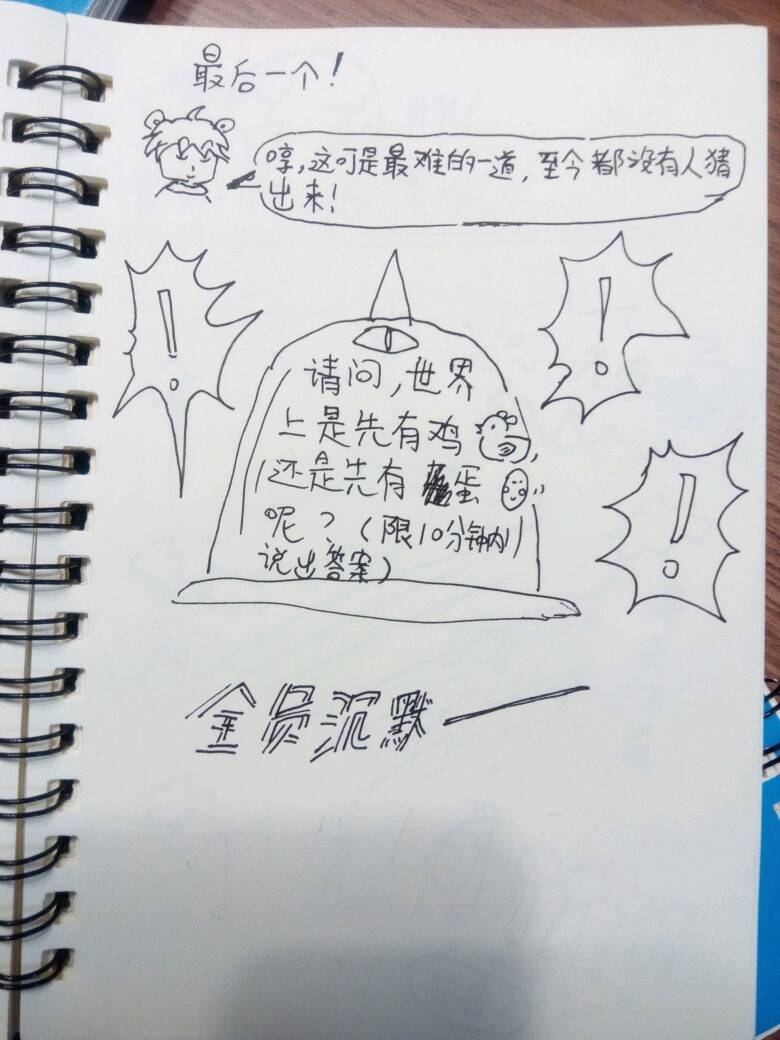 最后一个！
哼，这可是最难的一道，至今都没有人猪
出来！
请问，世界
上是先有鸡，
还是先有蛋
呢？（限10分钟内
说出答案）
全员沉默——